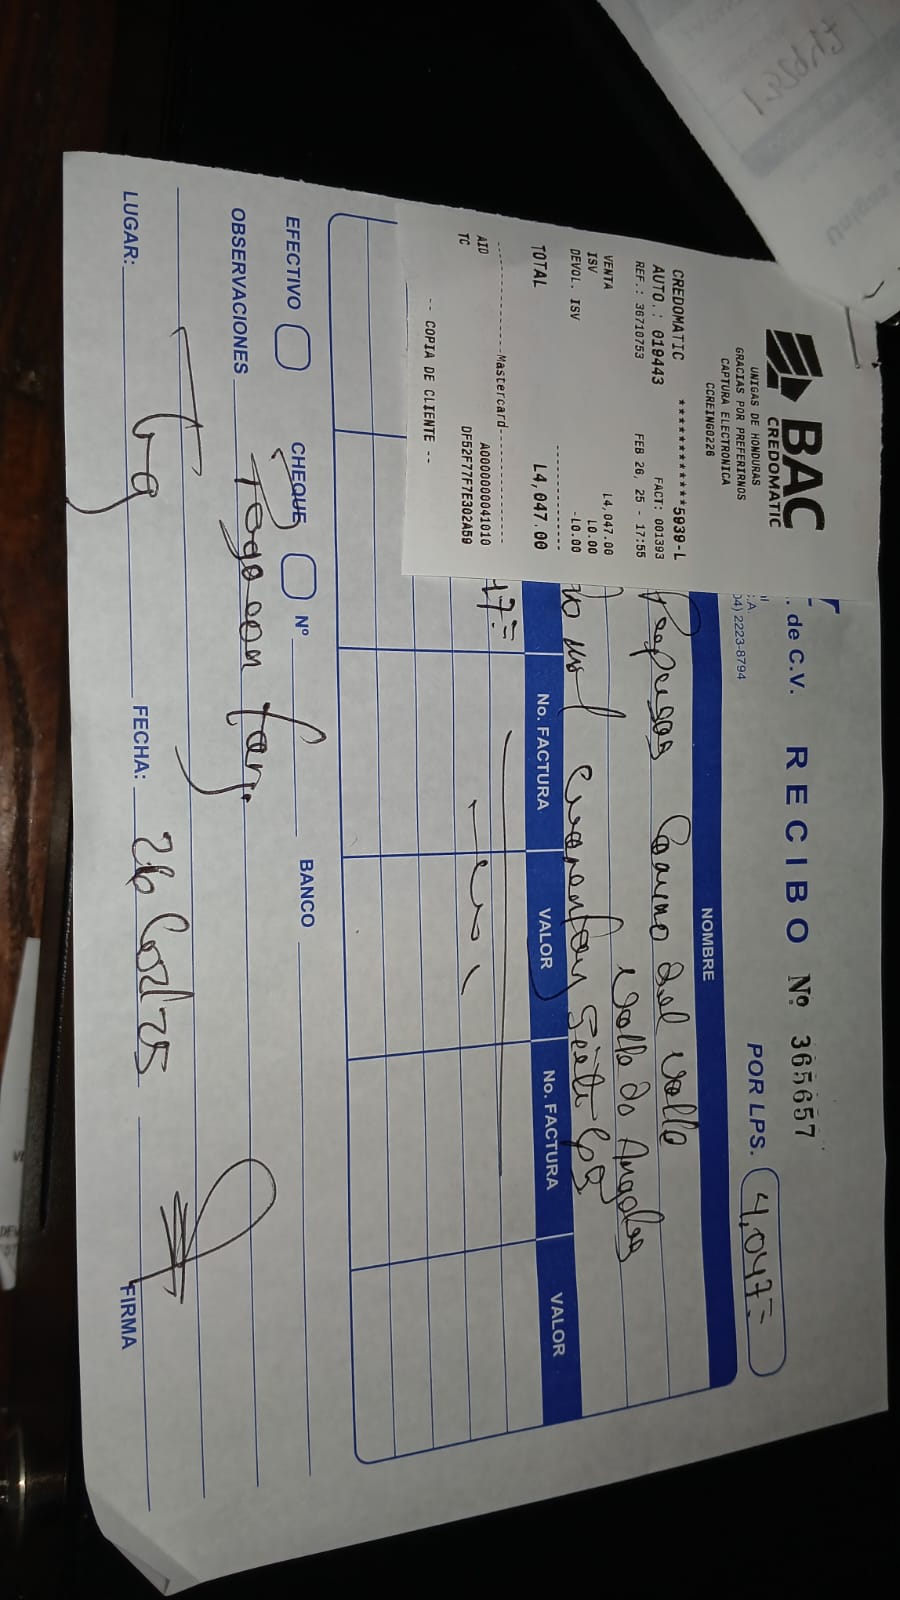 BAC
CREDOMATIC
UNIGAS DE HONDURAS
GRACIAS POR PREFERIRNOS
CAPTURA ELECTRONICA
CCREING0226
CREDOMATIC ************5939-L
AUTO.: 019443 FACT: 001393
REF.: 36710753 FEB 26, 25 - 17:55
VENTA L4,047.00
ISV L0.00
DEVOL. ISV -L0.00
TOTAL L4,047.00
------------Mastercard------------
AID A0000000041010
TC DF52F77F7E302A59
-- COPIA DE CLIENTE --
. de C.V. RECIBO Nº 365657
.A.
04) 2223-8794
POR LPS. 4,047=
NOMBRE
Pupusas Camino del Valle
Valle de Angeles
mil cuarenta y siete Lps
No. FACTURA VALOR No. FACTURA VALOR
47=
EFECTIVO CHEQUE Nº BANCO
OBSERVACIONES Pago con Tarj.
LUGAR: Tg FECHA: 26 02/25 FIRMA